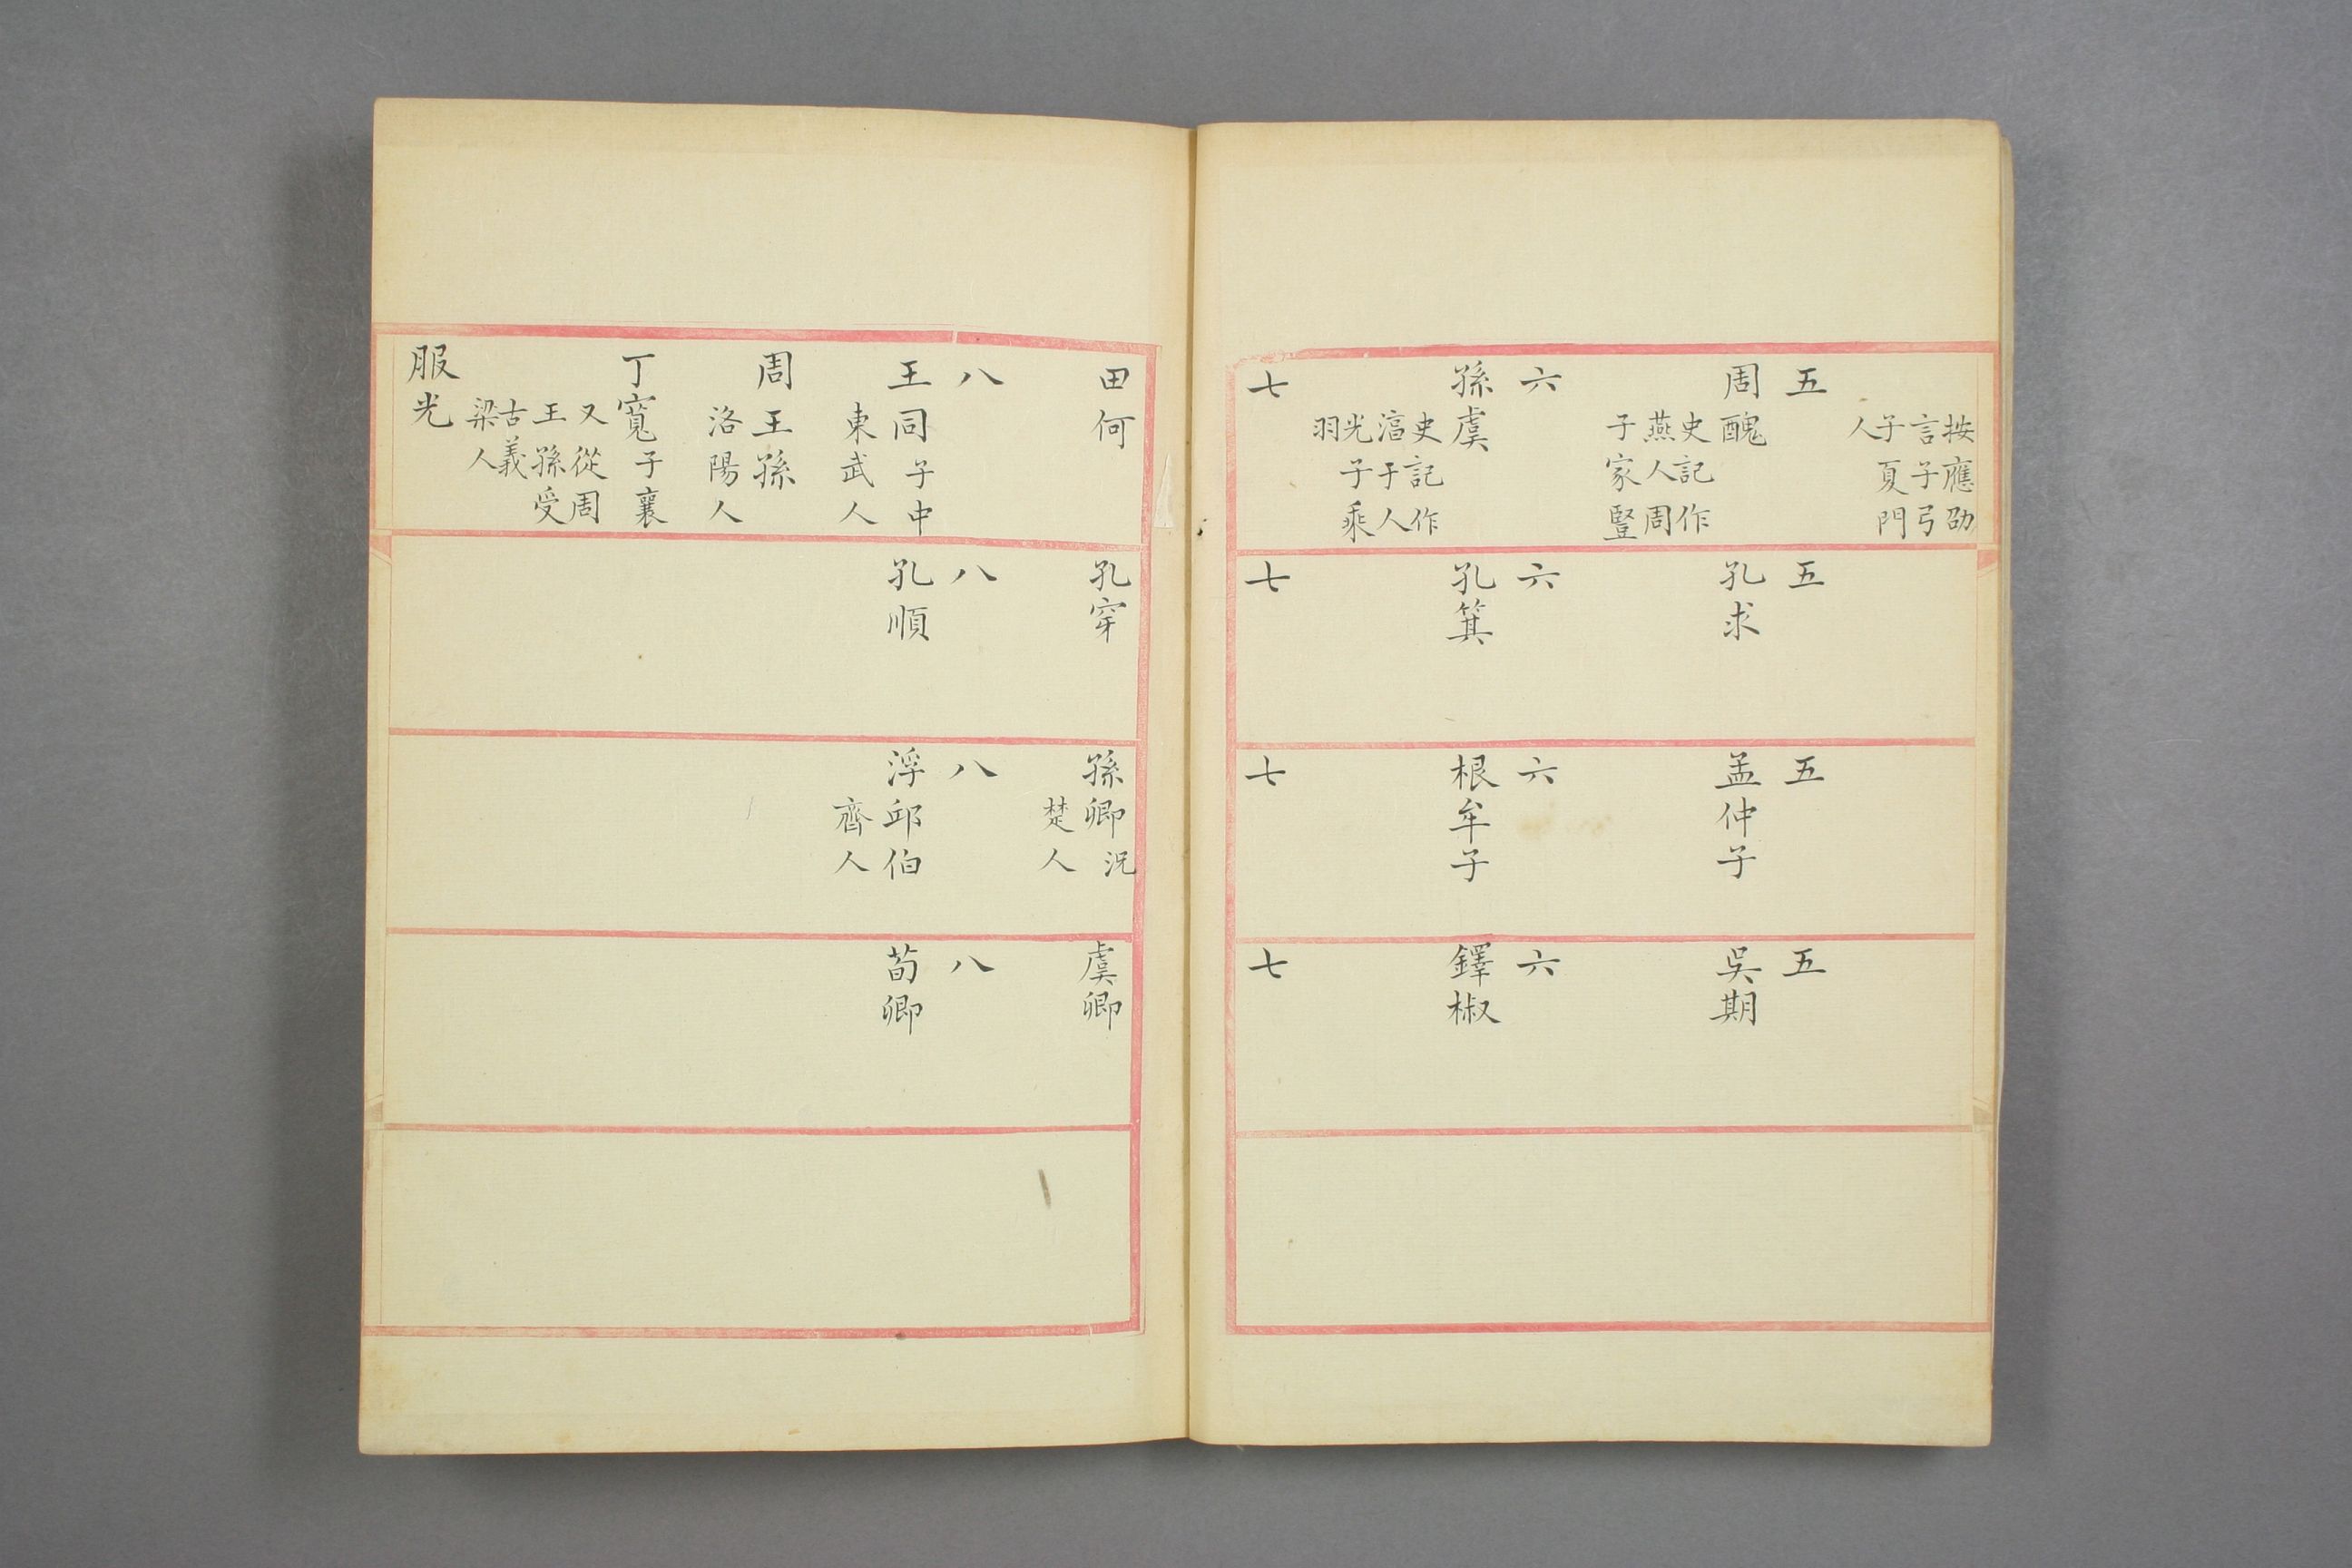 按應劭
言子弓
子夏門
人
五
周醜
史記作
燕人周
子家豎
六
孫虞
史記作
湻于人
光子乘
羽
七
五
孔求
六
孔箕
七
五
孟仲子
六
根牟子
七
五
吳期
六
鐸椒
七
田何
八
王同子中
東武人
周王孫
洛陽人
丁寬子襄
又從周
王孫受
古義
梁人
服光
孔穿
八
孔順
孫卿況
楚人
八
浮邱伯
齊人
虞卿
八
荀卿